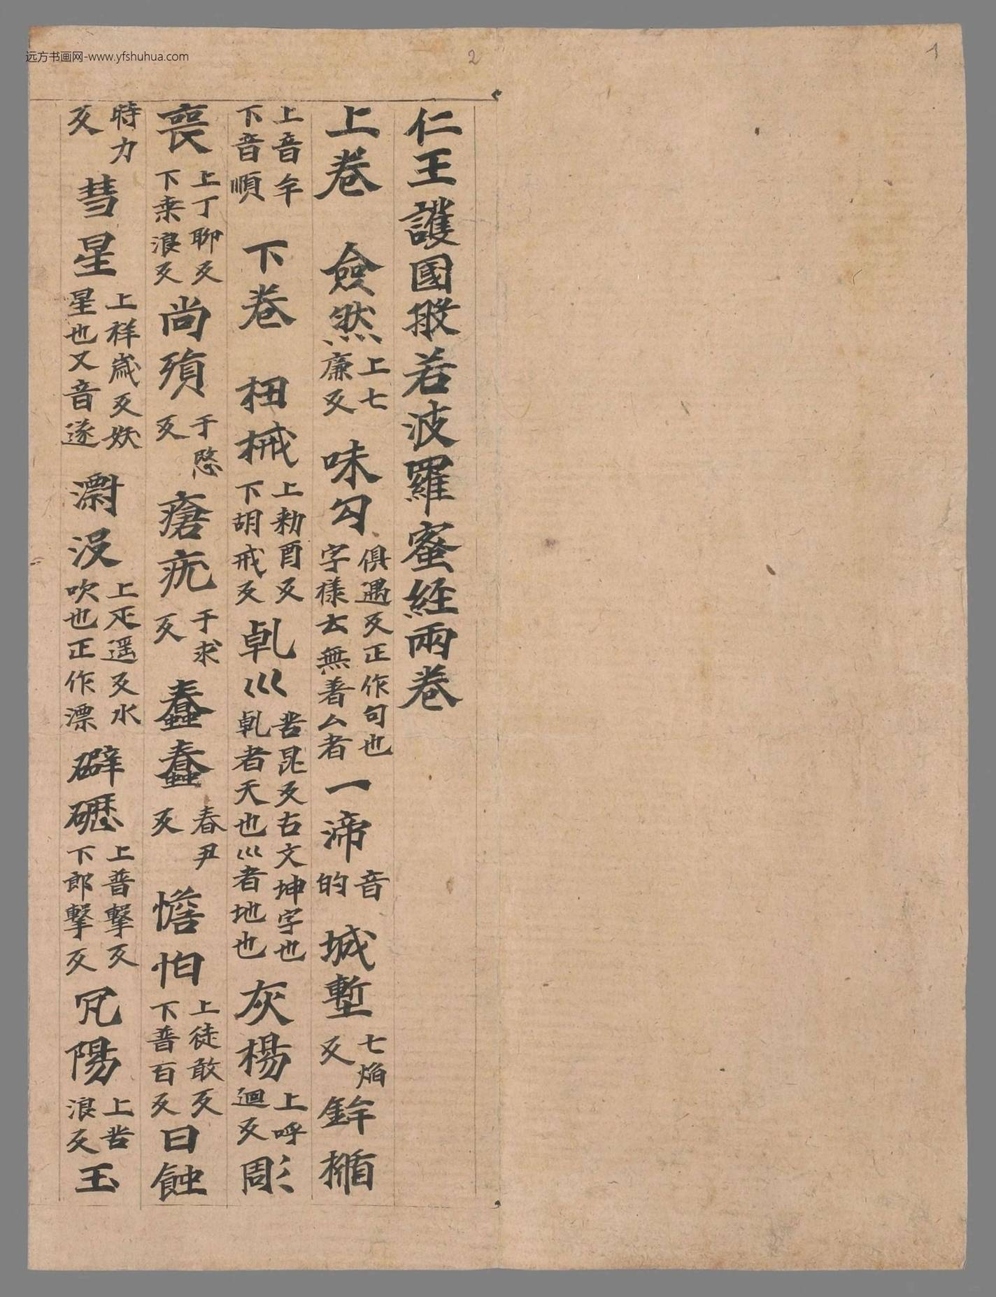 远方书画网-www.yfshuhua.com
2
1
仁王護國般若波羅蜜経兩卷
上卷 僉然上七廉反味勾俱遇反正作句也字樣云無着厶者一渧音的城塹七焰反鉾楯
上音牟下音順 下卷 杻械上勑酉反下胡戒反乹巛苦昆反古文坤字也乹者天也巛者地也灰楊上呼迴反彫
喪上丁聊反下桒浪反尚殞于愍反瘡疣于求反蠢蠢春尹反憺怕上徒敢反下普百反日蝕
時力反彗星上祥歲反妖星也又音遂没上疋遥反水吹也正作漂礔礰上普擊反下郎擊反亢陽上苦浪反玉